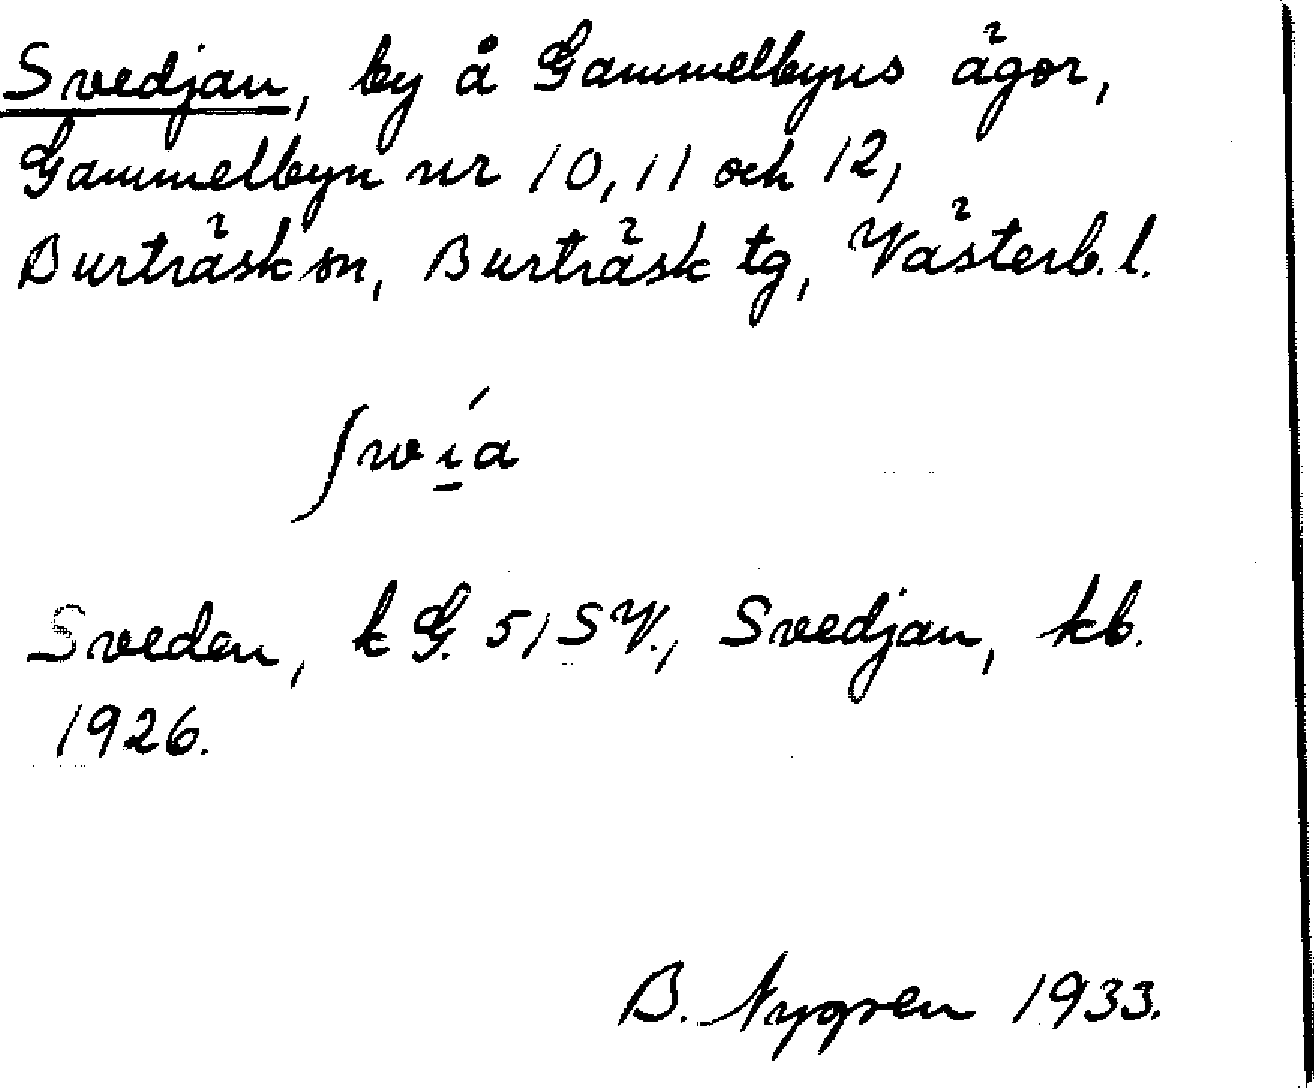 Svedjan, by å Gammelbyns ägor,
Gammelbyn nr 10, 11 och 12,
Burträsk sn, Burträsk tg, Västerb. l.
ʃwí̱a
Sveden, k G. 51 SV., Svedjan, kb.
1926.
B. Nygren 1933.